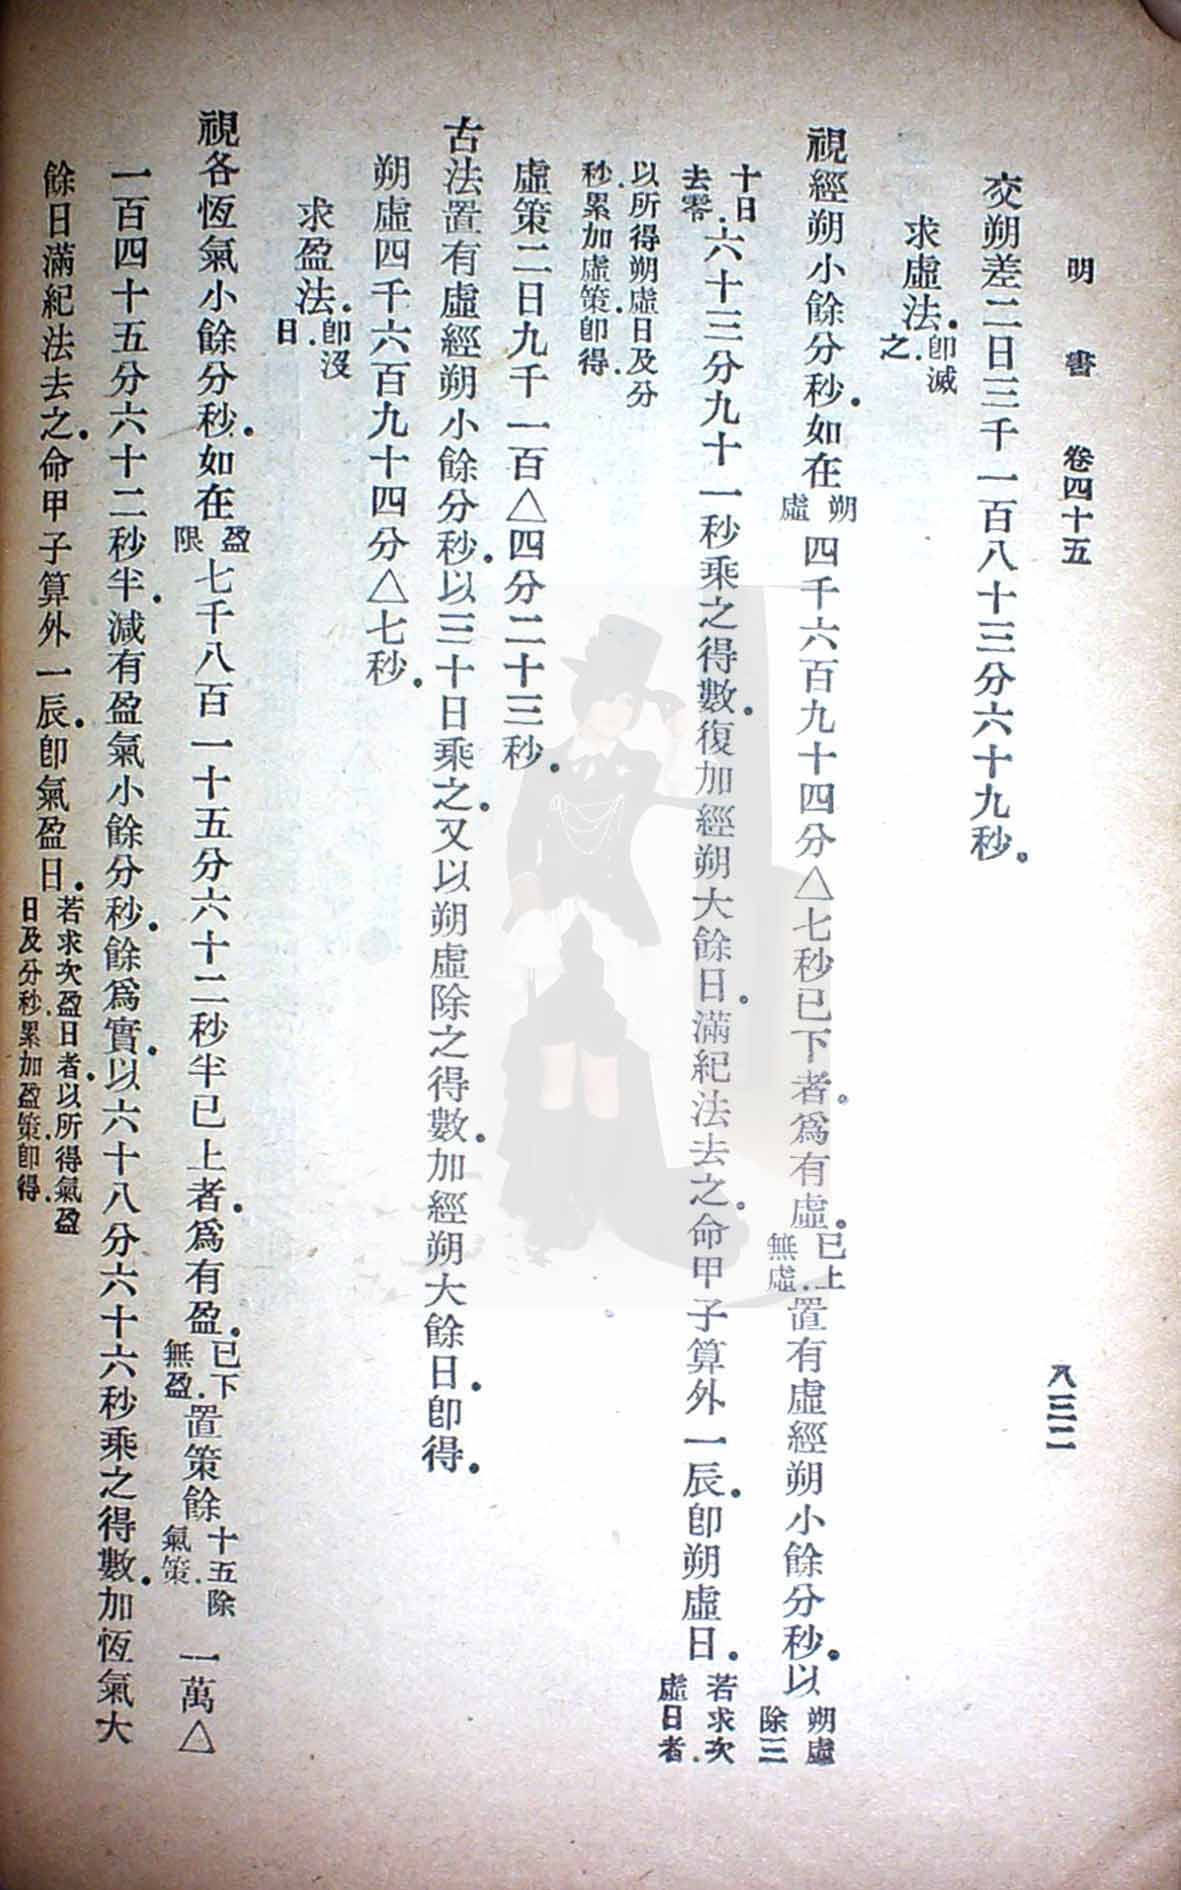 明書 卷四十五 八三二
交朔差二日三千一百八十三分六十九秒。
求虛法。卽滅之.
視經朔小餘分秒。如在朔虛四千六百九十四分△七秒已下者。爲有虛。已上無虛.置有虛經朔小餘分秒。以朔虛除三
十日去零.六十三分九十一秒乘之得數。復加經朔大餘日。滿紀法去之。命甲子算外一辰。卽朔虛日。若求次虛日者.
以所得朔虛日及分秒.累加虛策.卽得.
虛策二日九千一百△四分二十三秒。
古法置有虛經朔小餘分秒。以三十日乘之。又以朔虛除之得數。加經朔大餘日。卽得。
朔虛四千六百九十四分△七秒。
求盈法。卽沒日.
視各恆氣小餘分秒。如在盈限七千八百一十五分六十二秒半已上者。爲有盈。已下無盈.置策餘十五除氣策.一萬△
一百四十五分六十二秒半。減有盈氣小餘分秒。餘爲實。以六十八分六十六秒乘之得數。加恆氣大
餘日滿紀法去之。命甲子算外一辰。卽氣盈日。若求次盈日者.以所得氣盈日及分秒.累加盈策.卽得.